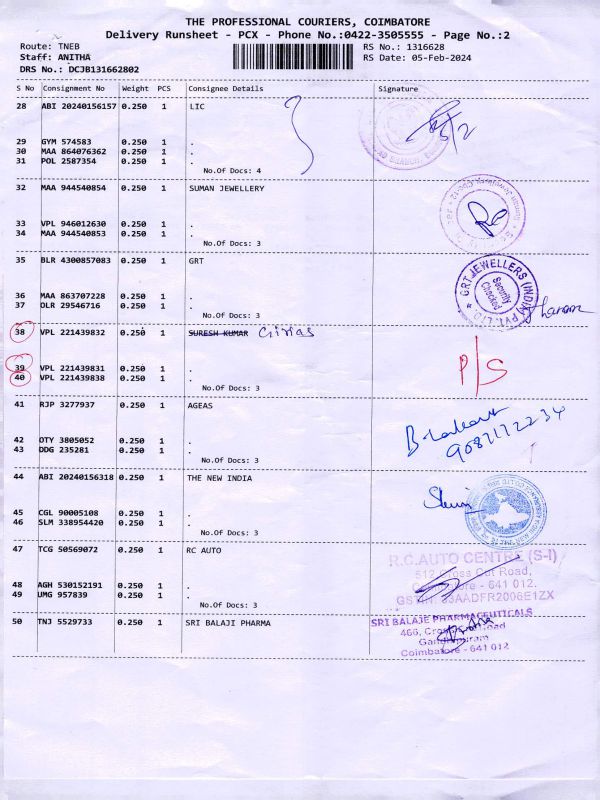 THE PROFESSIONAL COURIERS, COIMBATORE
Delivery Runsheet - PCX - Phone No.:0422-3505555 - Page No.:2
Route: TNEB RS No.: 1316628
Staff: ANITHA RS Date: 05-Feb-2024
DRS No.: DCJB131662802
S No Consignment No Weight PCS Consignee Details Signature
28 ABI 20240156157 0.250 1 LIC
29 GYM 574583 0.250 1 .
30 MAA 864076362 0.250 1 .
31 POL 2587354 0.250 1 .
No.Of Docs: 4
32 MAA 944540854 0.250 1 SUMAN JEWELLERY
33 VPL 946012630 0.250 1 .
34 MAA 944540853 0.250 1 .
No.Of Docs: 3
35 BLR 4300857083 0.250 1 GRT
GRT JEWELLERS (INDIA) PVT. LTD.
Security
Checked
36 MAA 863707228 0.250 1 .
37 DLR 29546716 0.250 1 .
No.Of Docs: 3
38 VPL 221439832 0.250 1 SURESH KUMAR
39 VPL 221439831 0.250 1 .
40 VPL 221439838 0.250 1 .
No.Of Docs: 3
P/S
41 RJP 3277937 0.250 1 AGEAS
42 OTY 3805052 0.250 1 .
43 DDG 235281 0.250 1 .
No.Of Docs: 3
44 ABI 20240156318 0.250 1 THE NEW INDIA
45 CGL 90005108 0.250 1 .
46 SLM 338954420 0.250 1 .
No.Of Docs: 3
47 TCG 50569072 0.250 1 RC AUTO
R.C.AUTO CENTRE (S-I)
512 Cross Cut Road,
Coimbatore - 641 012.
48 AGH 530152191 0.250 1 .
49 UMG 957839 0.250 1 .
No.Of Docs: 3
50 TNJ 5529733 0.250 1 SRI BALAJI PHARMA
SRI BALAJE PHARMACEUTICALS
466, Cross Cut Road
Gandhipuram
Coimbatore - 641 012